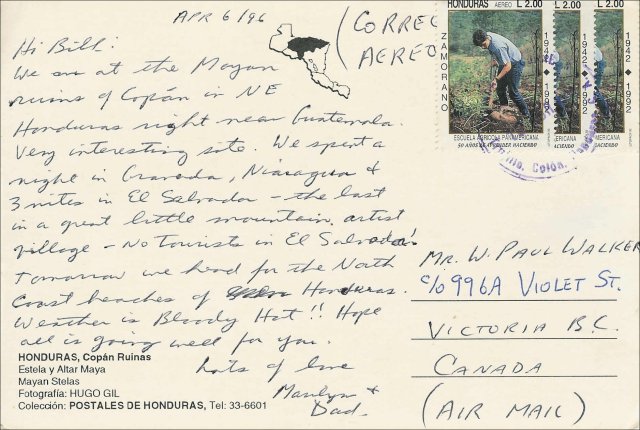 APR 6/96
(CORREO
AEREO)
Hi Bill:
We are at the Mayan
ruins of Copán in NE
Honduras right near Guatemala.
Very interesting site. We spent a
night in Granada, Nicaragua &
3 nites in El Salvador – the last
in a great little mountain artist
village – No Tourists in El Salvador!
Tomorrow we head for the North
Coast beaches of Honduras.
Weather is Bloody Hot!! Hope
all is going well for you.
Lots of love
Marilyn &
Dad.
HONDURAS, Copán Ruinas
Estela y Altar Maya
Mayan Stelas
Fotografía: HUGO GIL
Colección: POSTALES DE HONDURAS, Tel: 33-6601
HONDURAS AEREO L 2.00
L 2.00
L 2.00
ZAMORANO
1942 • 1992
1942 • 1992
1942 • 1992
ESCUELA AGRICOLA PANAMERICANA
50 AÑOS DE APRENDER HACIENDO
AMERICANA
HACIENDO
AMERICANA
HACIENDO
Colón,
MR. W. PAUL WALKER
c/o 996A VIOLET ST.
VICTORIA B.C.
CANADA
(AIR MAIL)